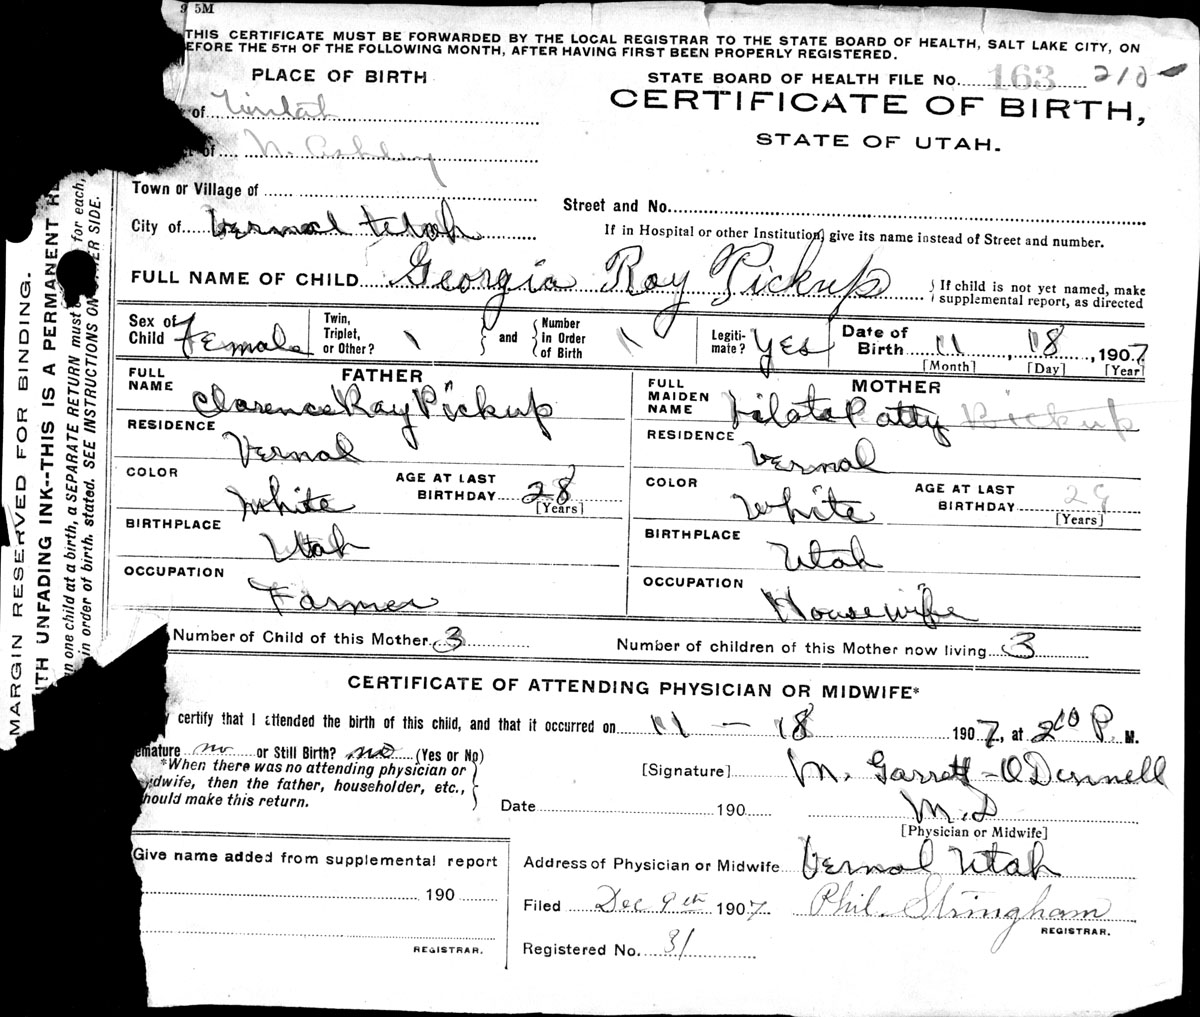 5M
THIS CERTIFICATE MUST BE FORWARDED BY THE LOCAL REGISTRAR TO THE STATE BOARD OF HEALTH, SALT LAKE CITY, ON
EFORE THE 5TH OF THE FOLLOWING MONTH, AFTER HAVING FIRST BEEN PROPERLY REGISTERED.
PLACE OF BIRTH
STATE BOARD OF HEALTH FILE NO. 163 210
of Uintah
CERTIFICATE OF BIRTH,
of N. Ashley
STATE OF UTAH.
Town or Village of
Street and No.
City of Vernal Utah
If in Hospital or other Institution, give its name instead of Street and number.
FULL NAME OF CHILD Georgia Ray Pickup
If child is not yet named, make
supplemental report, as directed
Sex of Child Female
Twin, Triplet, or Other?
and
Number in Order of Birth
Legiti-mate? Yes
Date of Birth 11, 18, 1907
[Month] [Day] [Year]
FATHER
FULL NAME Clarence Ray Pickup
RESIDENCE Vernal
COLOR White
AGE AT LAST BIRTHDAY 28
[Years]
BIRTHPLACE Utah
OCCUPATION Farmer
MOTHER
FULL MAIDEN NAME Vilate Patty Pickup
RESIDENCE Vernal
COLOR White
AGE AT LAST BIRTHDAY 29
[Years]
BIRTHPLACE Utah
OCCUPATION Housewife
Number of Child of this Mother 3
Number of children of this Mother now living 3
CERTIFICATE OF ATTENDING PHYSICIAN OR MIDWIFE*
y certify that I attended the birth of this child, and that it occurred on 11 - 18 1907, at 2 10 P. M.
emature no or Still Birth? no (Yes or No)
*When there was no attending physician or
dwife, then the father, householder, etc.,
hould make this return.
[Signature] M. Garrett-O'Dennell
M.D
Date 190
[Physician or Midwife]
Give name added from supplemental report
190
REGISTRAR.
Address of Physician or Midwife Vernal Utah
Filed Dec 9th 1907 Phil. Stringham
REGISTRAR.
Registered No. 31
MARGIN RESERVED FOR BINDING.
ITH UNFADING INK--THIS IS A PERMANENT RE
n one child at a birth, a SEPARATE RETURN must for each,
in order of birth, stated. SEE INSTRUCTIONS ON SIDE.